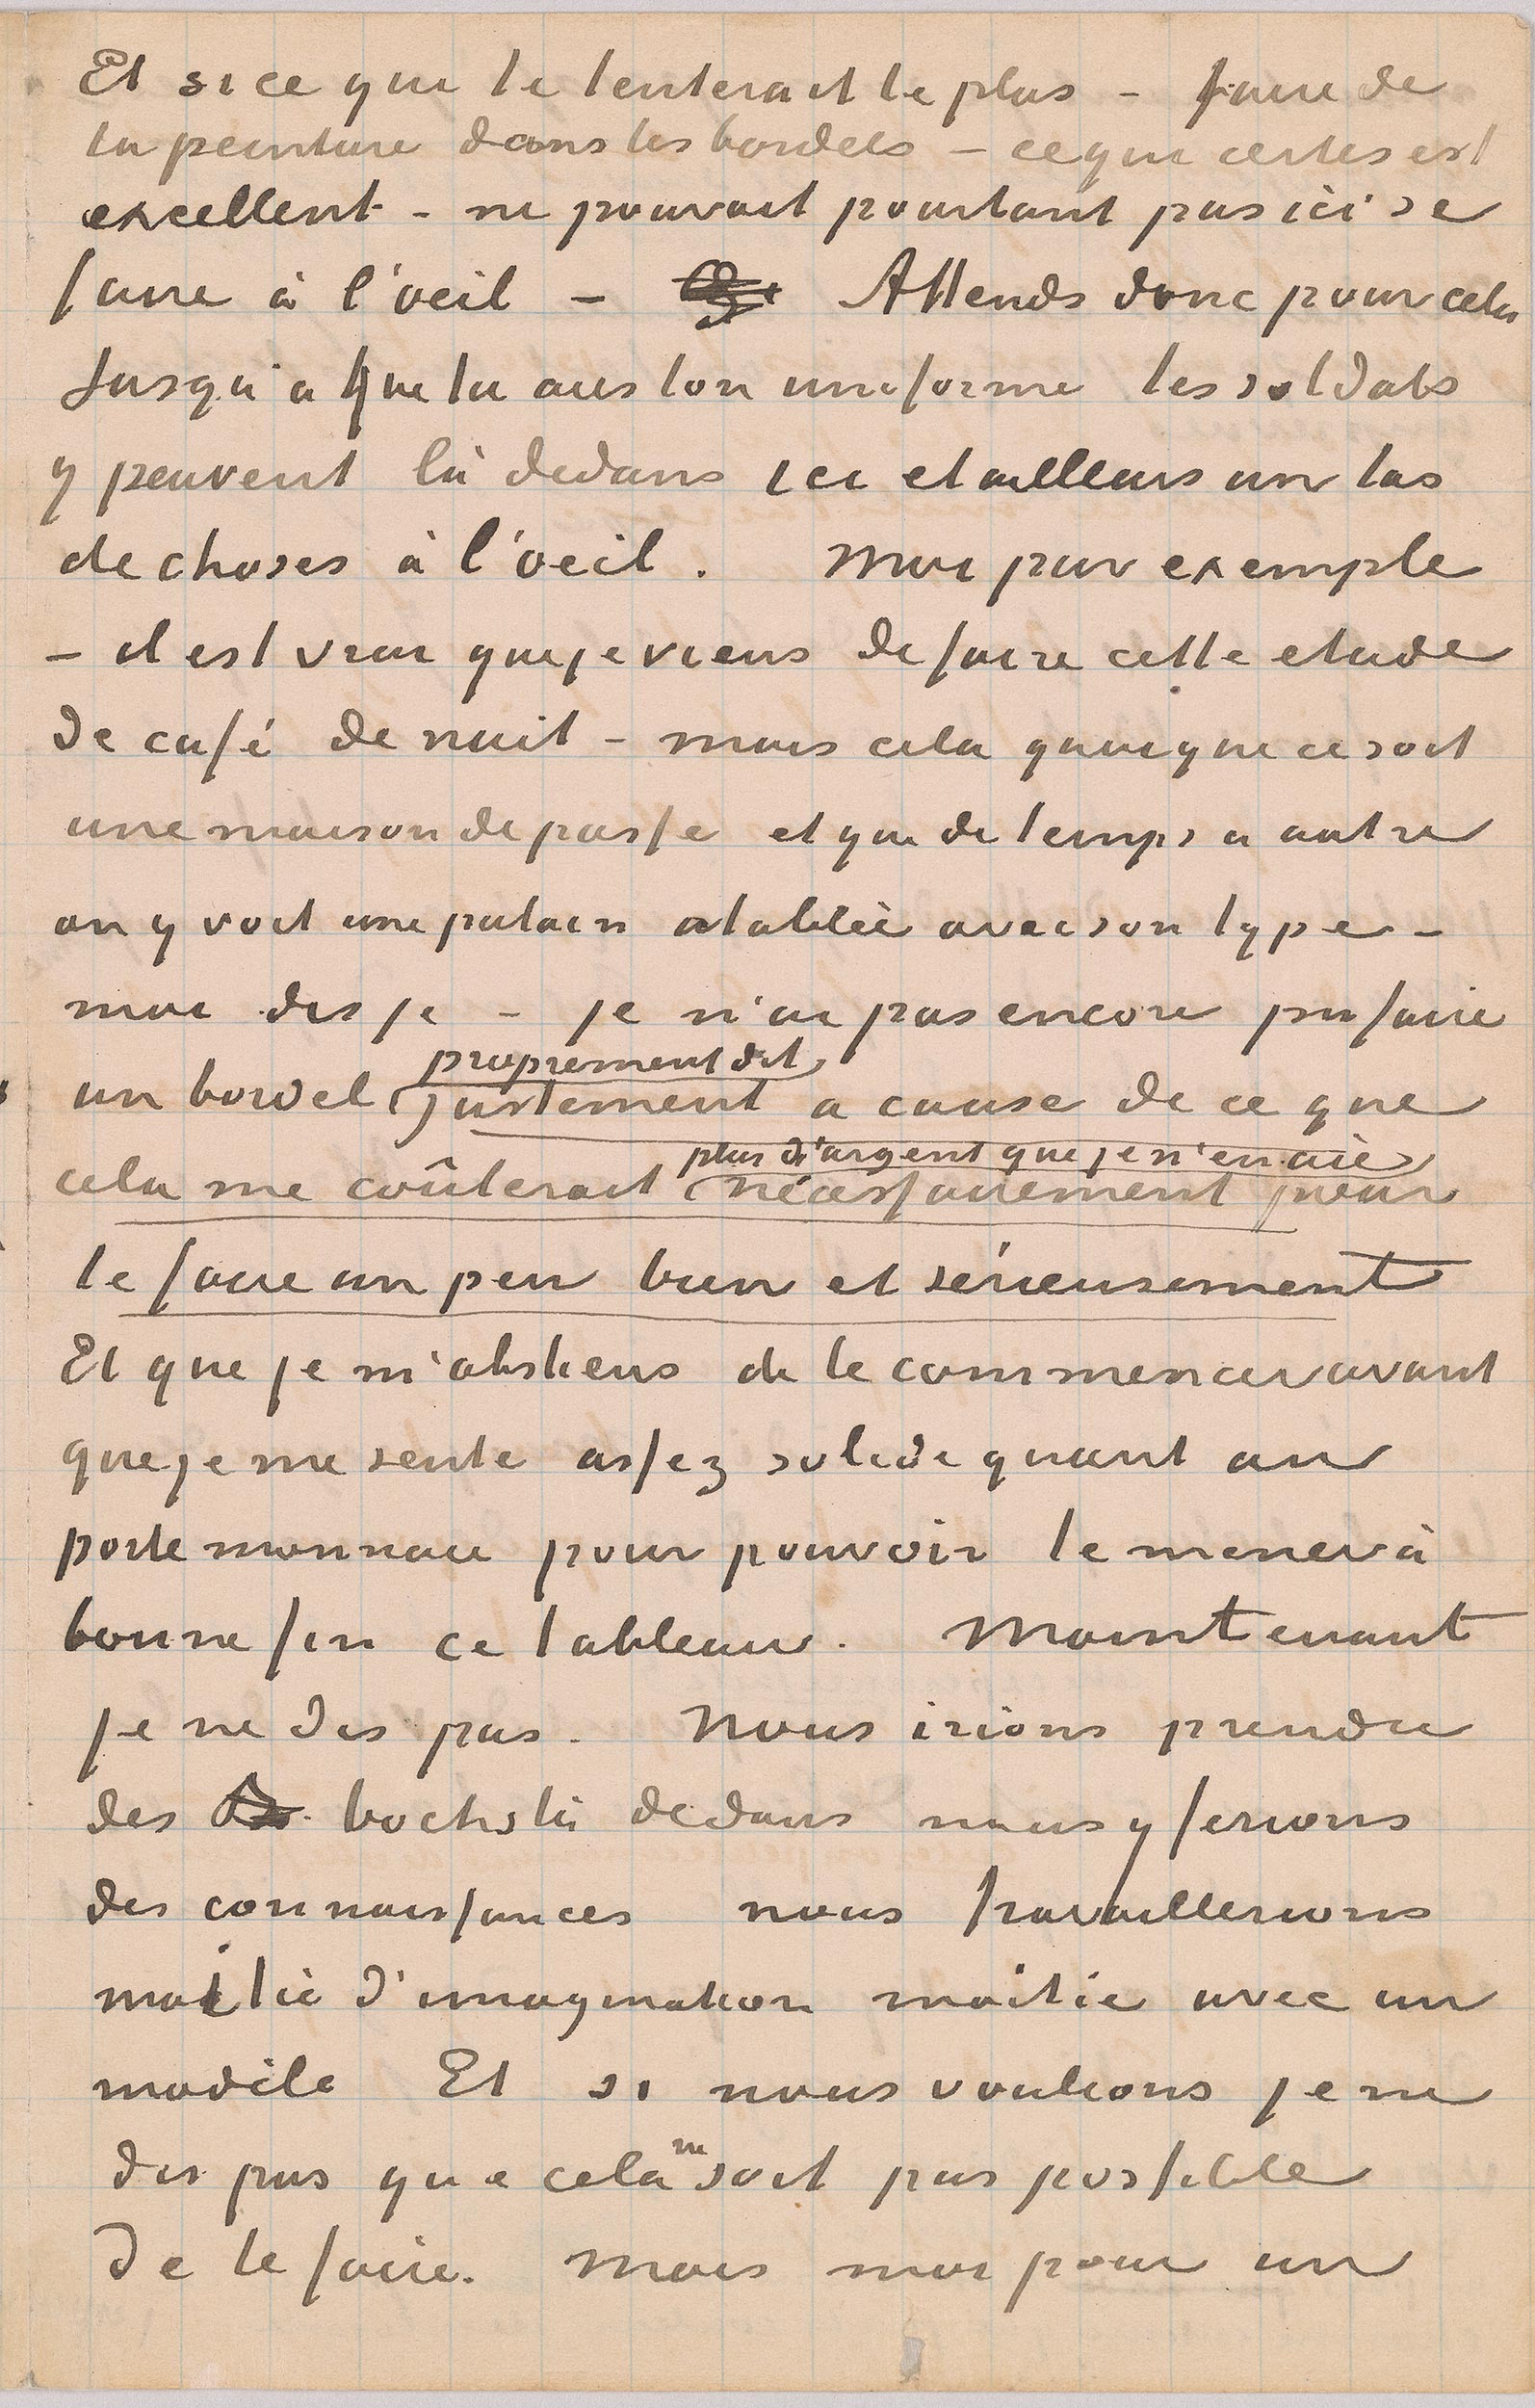 Et si ce qui te tenterait le plus – faire de
la peinture dans les bordels – ce qui certes est
excellent – ne pouvait pourtant pas ici se
faire à l'oeil – Attends donc pour cela
Jusqu'a que tu aies ton uniforme les soldats
y peuvent là dedans ici et ailleurs un tas
de choses à l'oeil. Moi par exemple
– il est vrai que je viens de faire cette etude
de café de nuit – mais cela quoique ce soit
une maison de passe et que de temps a autre
on y voit une putain atablée avec son type –
moi dis je – je n'ai pas encore pu faire
proprement dit
un bordel justement a cause de ce que
plus d'argent que je n'en aie
cela me coûterait nécessairement pour
le faire un peu bien et sérieusement
Et que je m'abstiens de le commencer avant
que je me sente assez solide quant au
porte monnaie pour pouvoir le mener à
bonne fin ce tableau. Maintenant
je ne dis pas. Nous irions prendre
des bocks là dedans nous y ferions
des connaissances nous travaillerions
moitié d'imagination moitié avec un
modèle Et si nous voulions je ne
ne
dis pas que cela soit pas possible
de le faire. Mais moi pour un